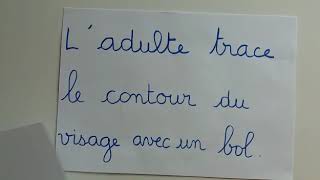 L'adulte trace
le contour du
visage avec un bol.